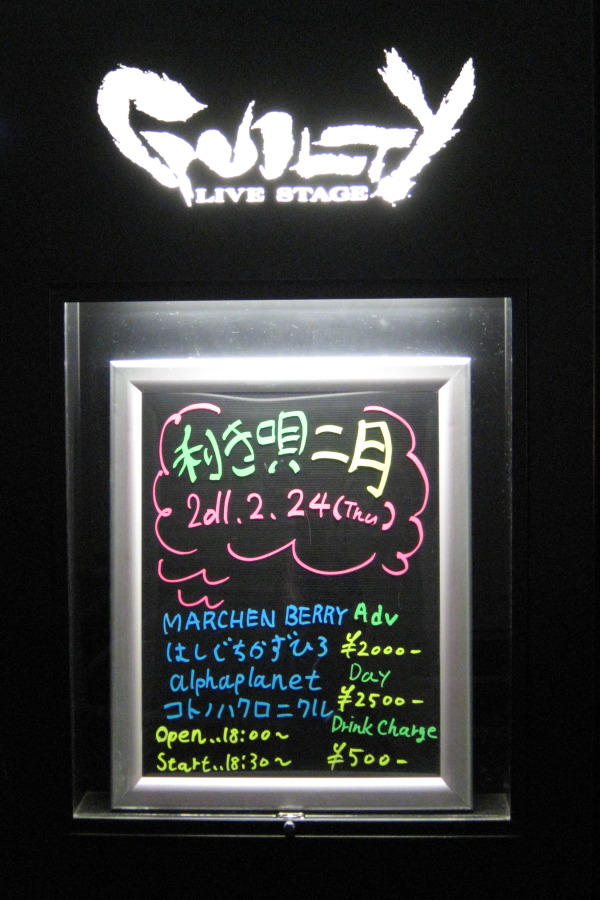 GUILTY
LIVE STAGE
利き唄二月
2011.2.24(Thu)
MARCHEN BERRY
はしぐちかずひろ
alphaplanet
コトノハクロニクル
Open...18:00~
Start...18:30~
Adv
¥2000-
Day
¥2500-
Drink Charge
¥500-